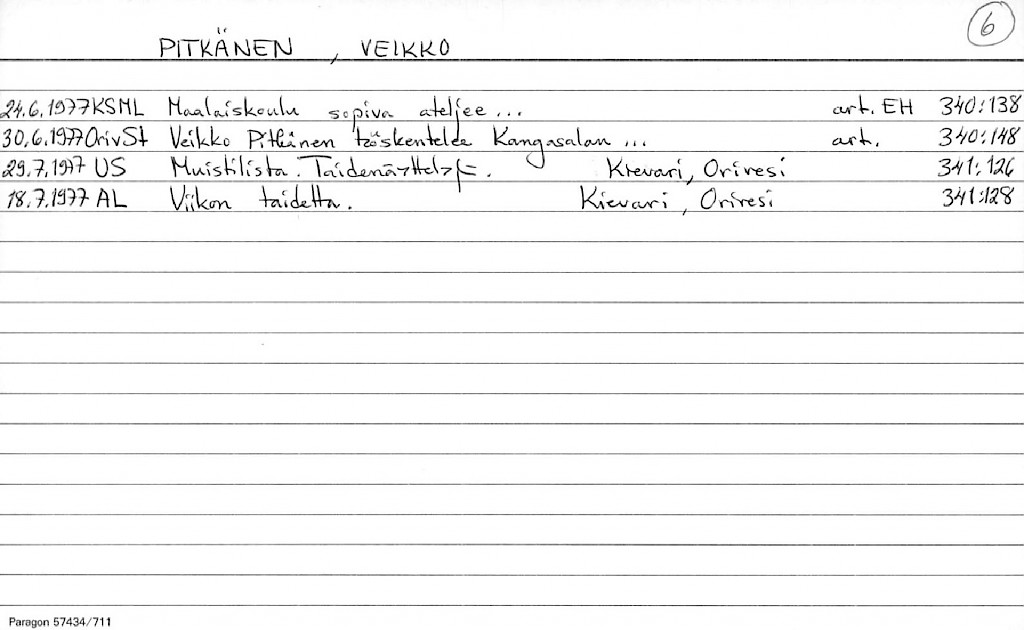 6
PITKÄNEN, VEIKKO
24.6.1977 KSML Maalaiskoulu sopiva ateljee... art. EH 340:138
30.6.1977 OrivSt Veikko Pitkänen työskentelee Kangasalan... art. 340:148
29.7.1977 US Muistilista. Taidenäyttelyt. Kievari, Orivesi 341:126
18.7.1977 AL Viikon taidetta. Kievari, Orivesi 341:128
Paragon 57434/711